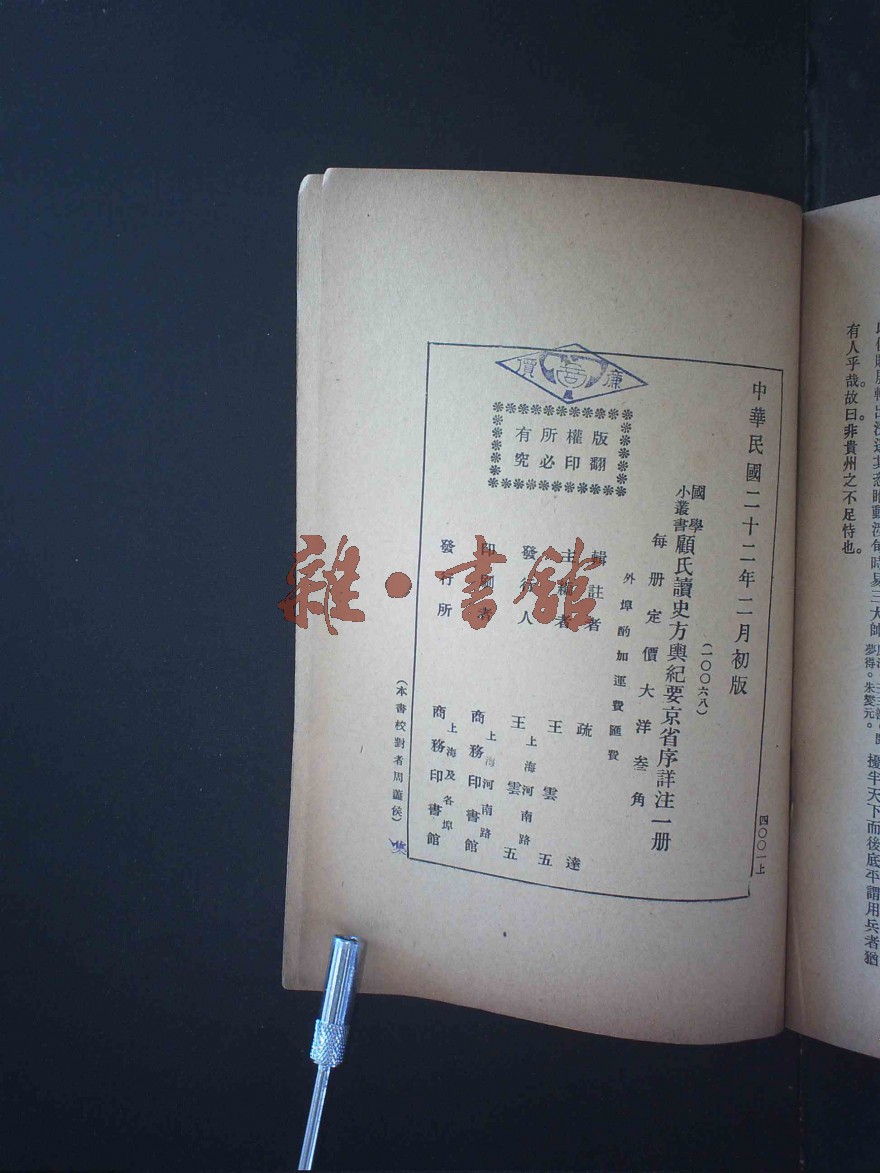 有人乎哉。故曰。非貴州之不足恃也。
夢得。朱燮元。
擾半天下而後底平謂用兵者猶
中華民國二十二年二月初版
四〇〇一上
(一〇〇六八)
國學小叢書 顧氏讀史方輿紀要京省序詳注一册
每册定價大洋叁角
外埠酌加運費匯費
輯註者 疏達
主編者 王雲五
發行人 王雲五
上海河南路
印刷者 商務印書館
上海河南路
發行所 商務印書館
上海及各埠
版權所有
翻印必究
廉價
(本書校對者周蘧侯)
雜·書館